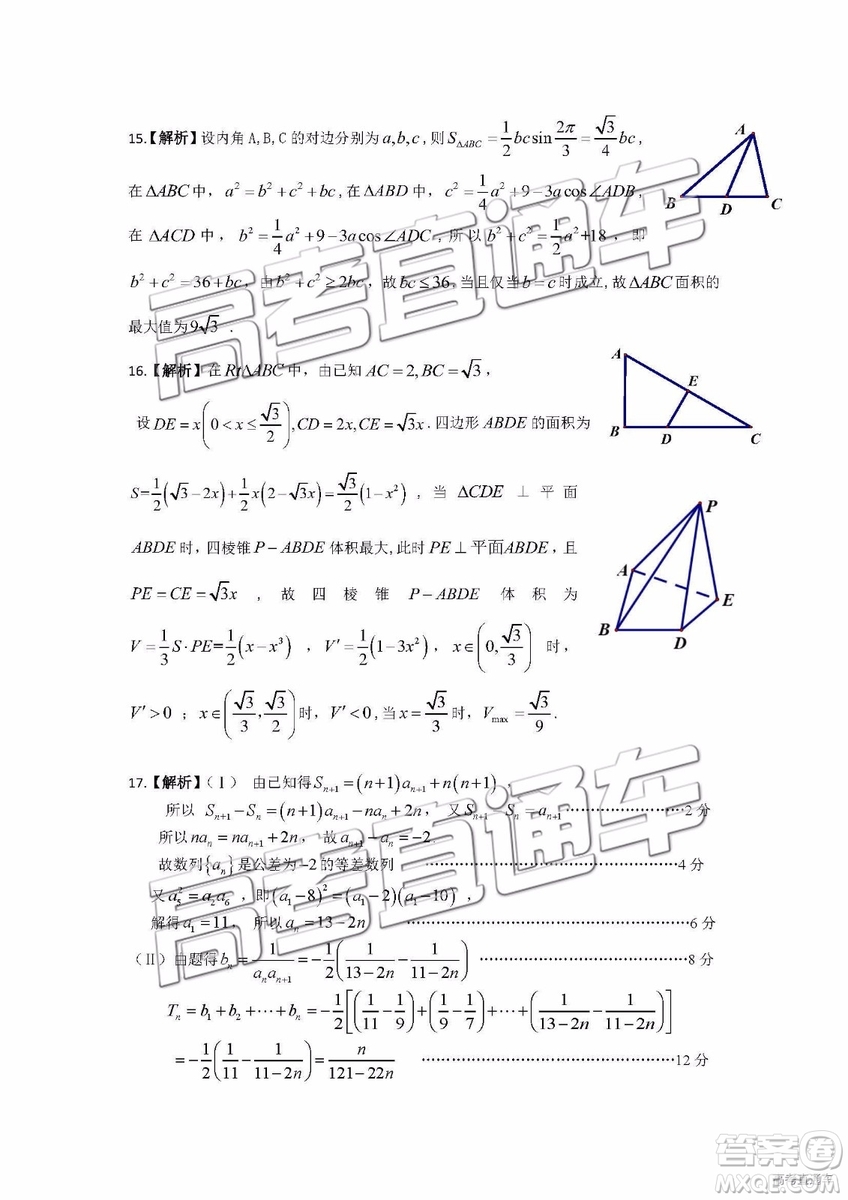 15.【解析】设内角 A,B,C 的对边分别为 a,b,c ,则 S_{ΔABC} = 1/2 bc sin 2π/3 = √3/4 bc ,
在 ΔABC 中, a² = b² + c² + bc ,在 ΔABD 中, c² = 1/4 a² + 9 − 3a cos∠ADB ,
在 ΔACD 中, b² = 1/4 a² + 9 − 3a cos∠ADC ,所以 b² + c² = 1/2 a² + 18 ,即
b² + c² = 36 + bc ,由 b² + c² ≥ 2bc ,故 bc ≤ 36 ,当且仅当 b = c 时成立,故 ΔABC 面积的
最大值为 9√3 .
A
B
D
C
16.【解析】在 RtΔABC 中,由已知 AC = 2, BC = √3 ,
设 DE = x (0 < x ≤ √3/2), CD = 2x, CE = √3x .四边形 ABDE 的面积为
S = 1/2(√3 − 2x) + 1/2 x(2 − √3x) = √3/2 (1 − x²) ,当 ΔCDE ⊥ 平面
ABDE 时,四棱锥 P − ABDE 体积最大,此时 PE ⊥ 平面ABDE ,且
PE = CE = √3x ,故四棱锥 P − ABDE 体积为
V = 1/3 S·PE = 1/2 (x − x³) , V′ = 1/2 (1 − 3x²) , x ∈ (0, √3/3) 时,
V′ > 0 ; x ∈ (√3/3, √3/2) 时, V′ < 0 ,当 x = √3/3 时, V_{max} = √3/9 .
A
E
B
D
C
P
A
E
B
D
17.【解析】(Ⅰ) 由已知得 S_{n+1} = (n+1)a_{n+1} + n(n+1) ,
所以 S_{n+1} − S_n = (n+1)a_{n+1} − na_n + 2n , 又 S_{n+1} S_n = a_{n+1} ························2 分
所以 na_n = na_{n+1} + 2n , 故 a_{n+1} − a_n = −2 ,
故数列{a_n} 是公差为 −2 的等差数列 ························4 分
又 a_5² = a_2a_6 ,即 (a_1 − 8)² = (a_1 − 2)(a_1 − 10) ,
解得 a_1 = 11, 所以 a_n = 13 − 2n ························6 分
(Ⅱ) 由题得 b_n = 1/(a_n a_{n+1}) = −1/2 (1/(13−2n) − 1/(11−2n)) ························8 分
T_n = b_1 + b_2 + ⋯ + b_n = −1/2 [(1/11 − 1/9) + (1/9 − 1/7) + ⋯ + (1/(13−2n) − 1/(11−2n))]
= −1/2 (1/11 − 1/(11−2n)) = n/(121−22n) ························12 分
高考直通车
高考直通车
答案圈
MXQE.COM